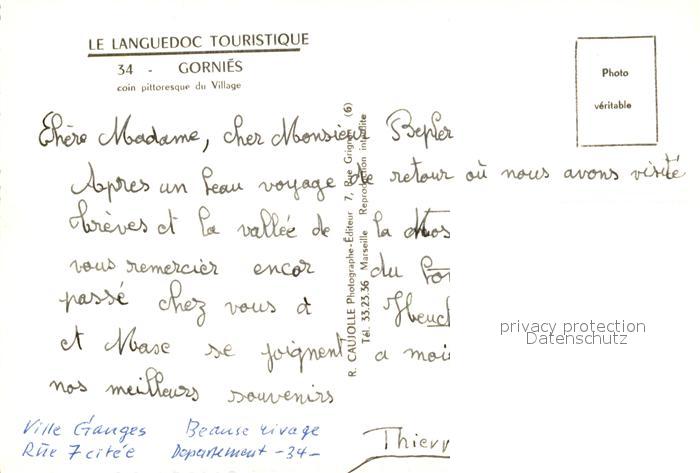 LE LANGUEDOC TOURISTIQUE
34 - GORNIÉS
coin pittoresque du Village
Photo
véritable
Chère Madame, cher Monsieur Bepler
Apres un beau voyage de retour où nous avons visité
Trèves et la vallée de la Mos
vous remercier encor du
passé chez vous à Heuch
et Maxe se joignent a moi
nos meilleurs souvenirs
Thierr
R. CAUJOLLE Photographe-Éditeur 7, Rue Grignan (6)
Tél. 33.23.36 Marseille Reproduction interdite
privacy protection
Datenschutz
Ville Ganges Beause rivage
Rue 7 citée Departement -34-